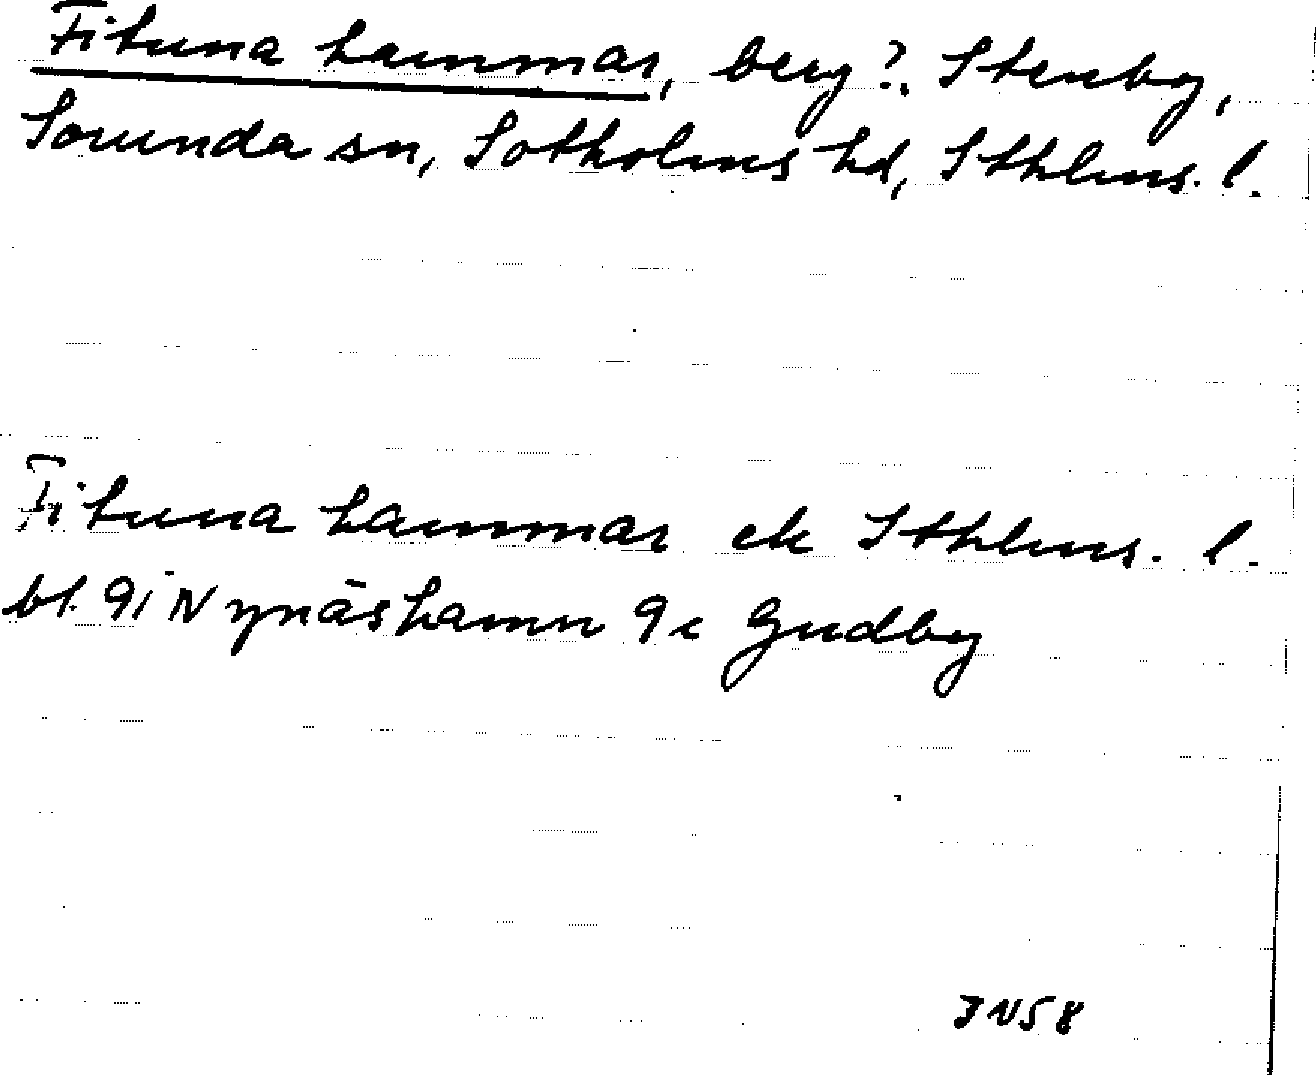 Fituna hammar, berg?. Stenby,
Sorunda sn, Sotholms hd, Sthlms. l.
Fituna hammar ek Sthlms. l.
bl. 9i Nynäshamn 9c Gudby
JN58